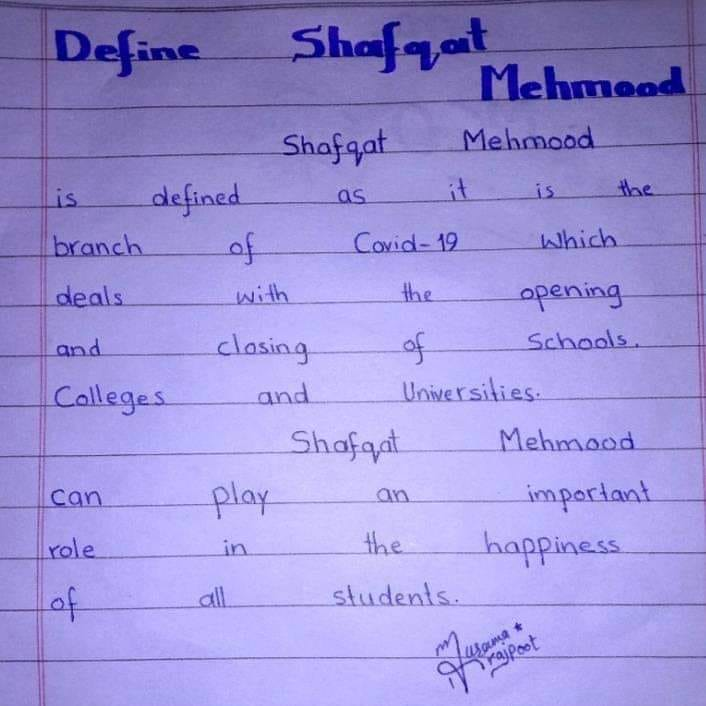 Define Shafqat
Mehmood
Shafqat Mehmood
is defined as it is the
branch of Covid-19 which
deals with the opening
and closing of Schools.
Colleges and Universities.
Shafqat Mehmood
can play an important
role in the happiness
of all students.
rajpoot